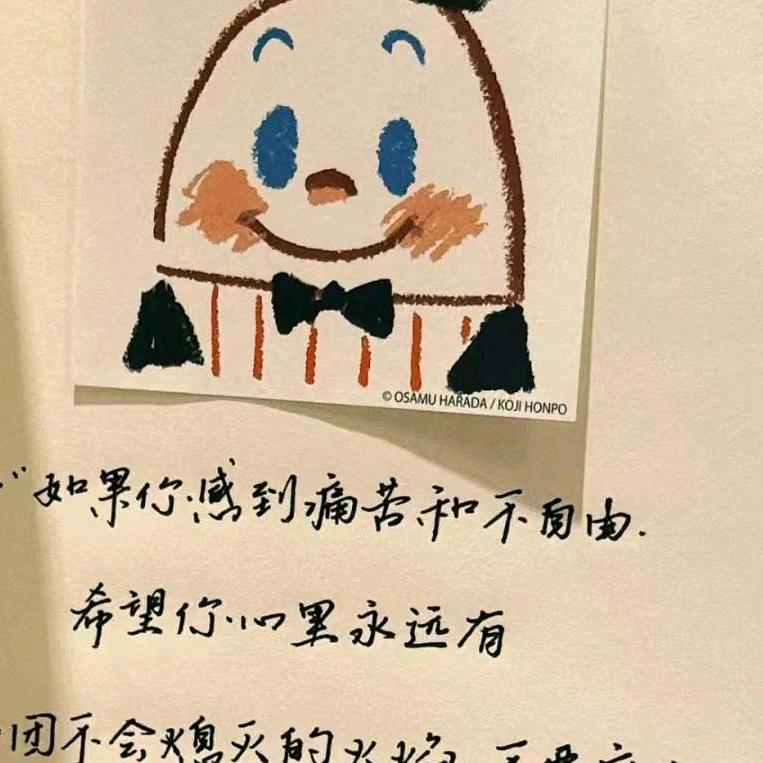 © OSAMU HARADA / KOJI HONPO
“如果你感到痛苦和不自由.
希望你心里永远有
团不会熄灭的火焰